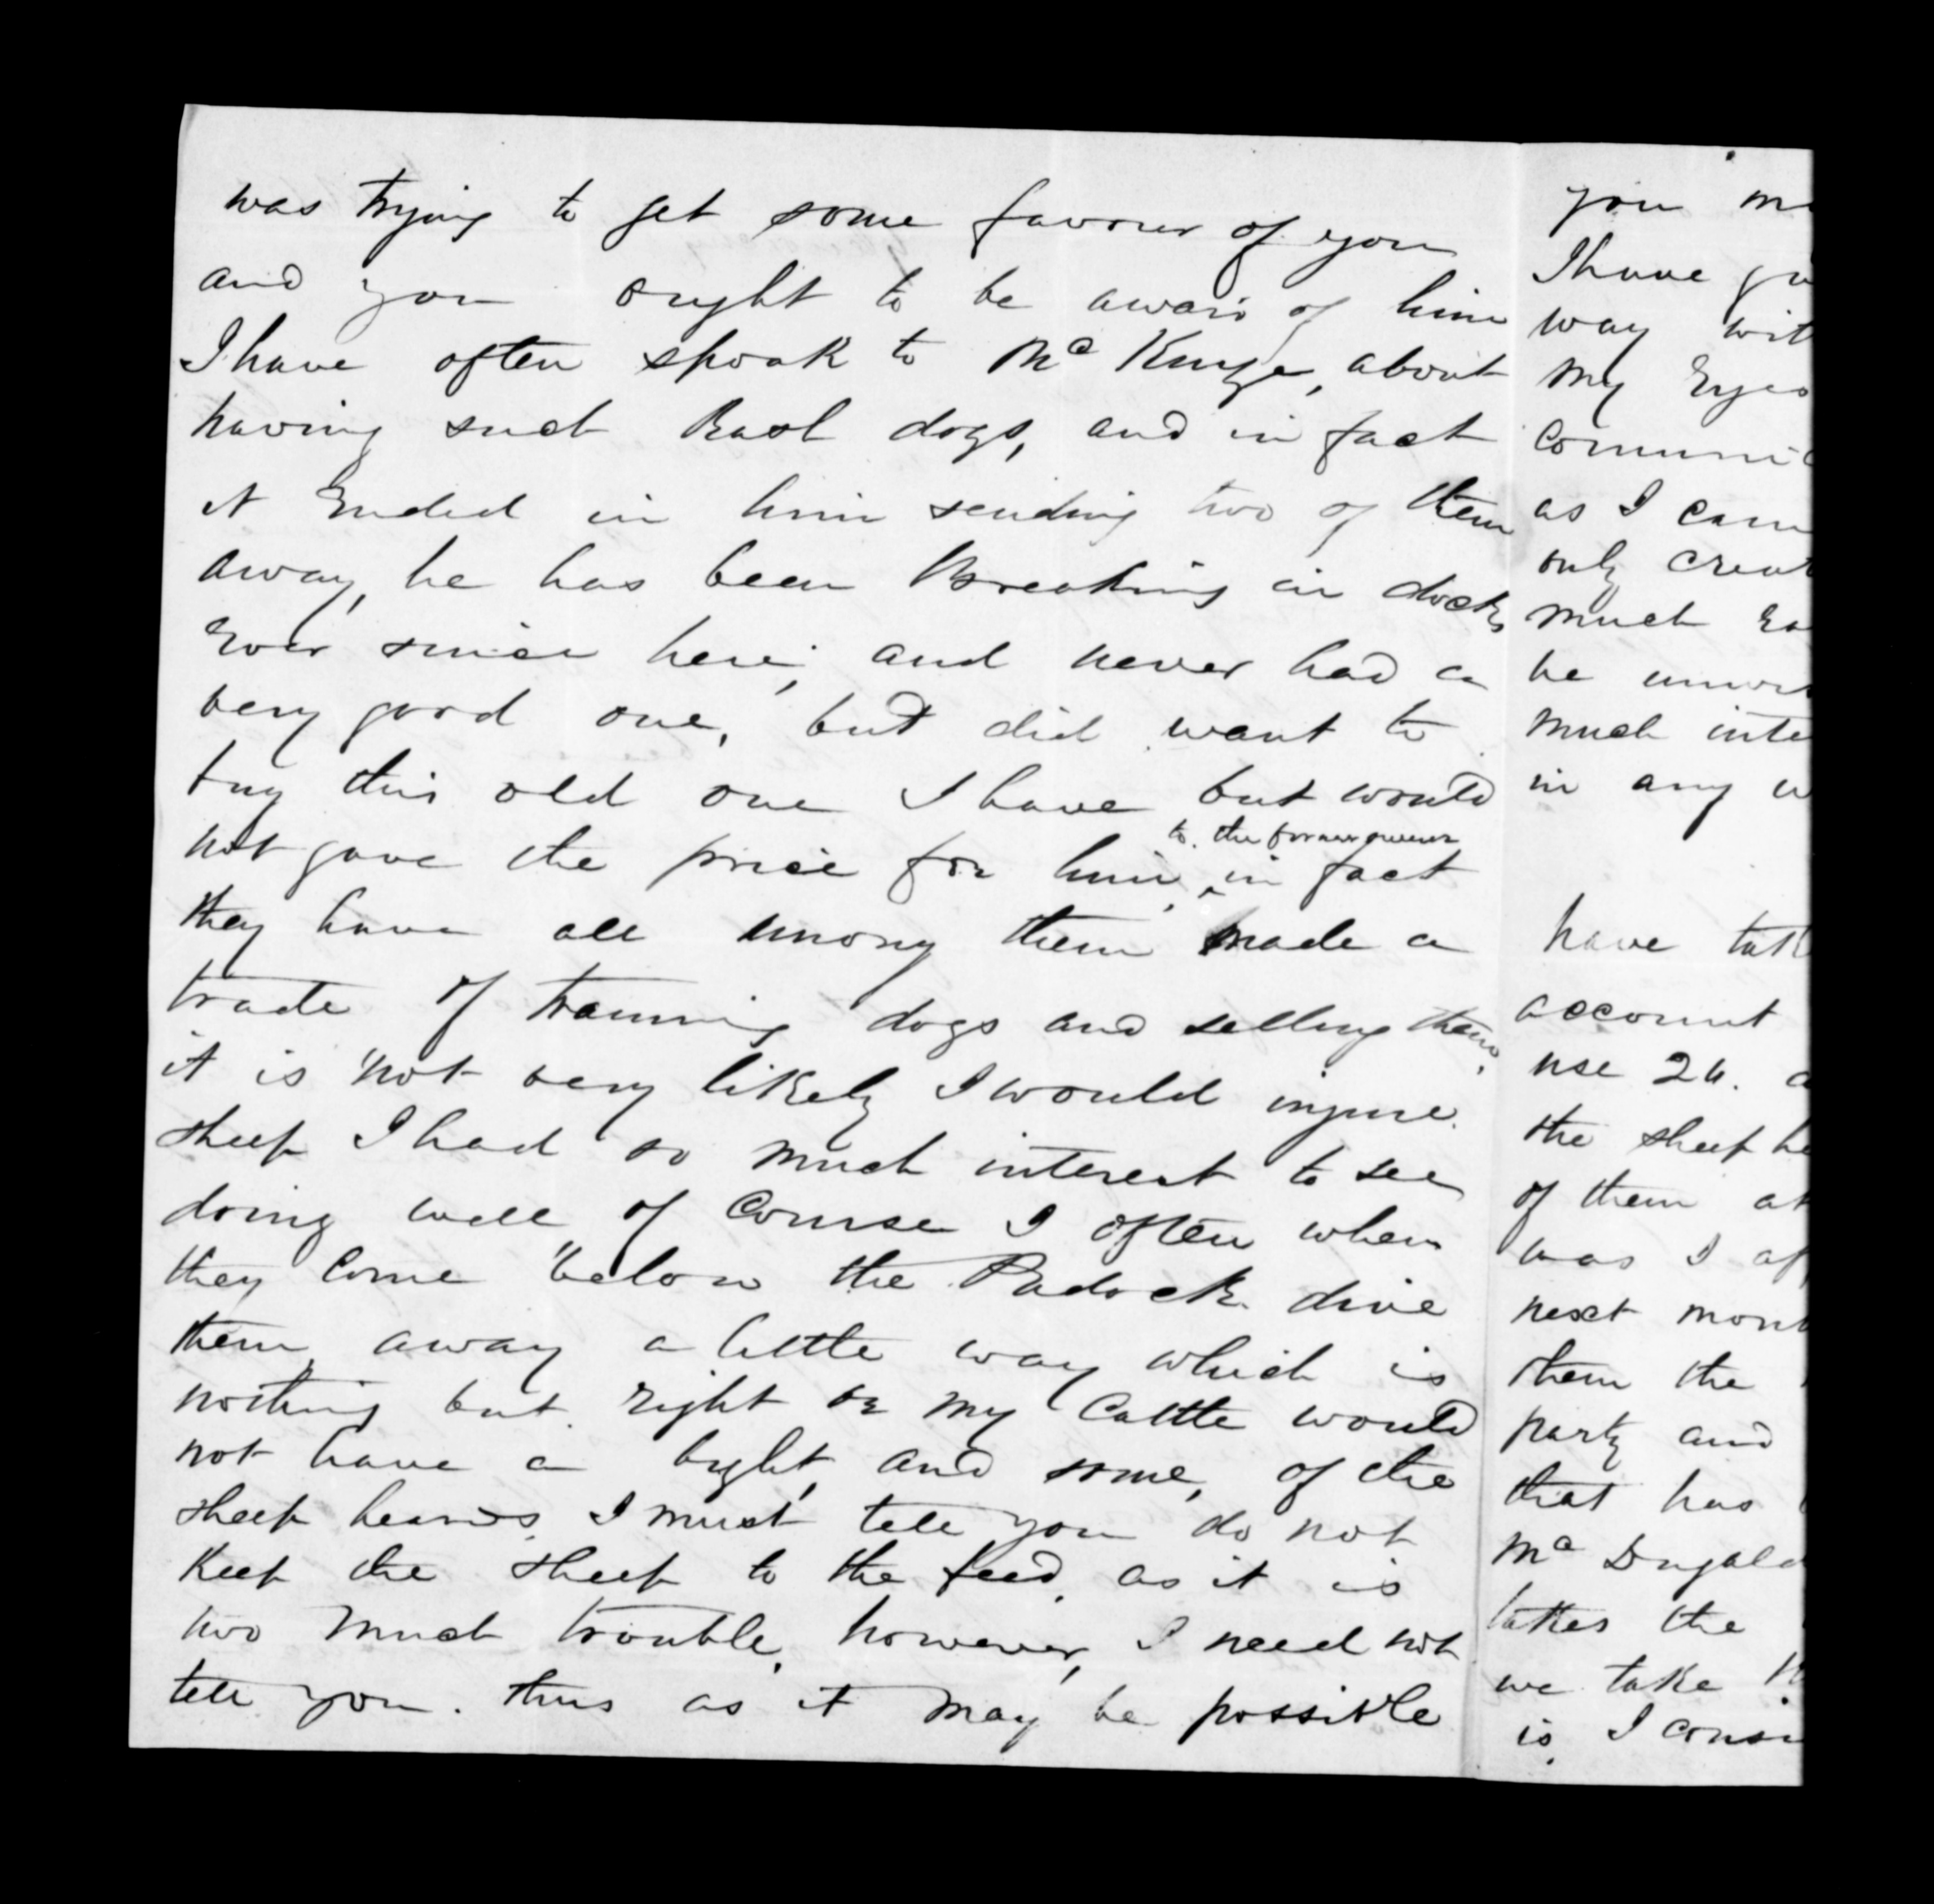 was trying to get some favour of you
and you ought to be awair of him
I have often spoak to Mc Kinze, about
having such Bad dogs, and in fact
it Ended in him sending two of them
away, he has been Breaking in
Ever since here, and never had a
very good one, but did want to
buy this old one I have but would
to the former owner
not gave the price for him, in fact
they have all among them made a
trade of training dogs and selling them,
it is not very likely I would injure
sheep I had so much interest to see
doing well, of Course I often when
they Come below the Padock drive
them away a little way which is
nothing but right or my Cattle would
not have a bight, and some, of the
sheep heards, I must tell you do not
keep the sheep to the feed, as it is
two much trouble, however, I need not
tell you. thus as it may be possible
you
I have
way
My Eyes
as I
only
much
be
much
in any
have
account
use 24.
the sheep
of them
was I
next
them the
party and
that has
Mc Dugald
takes the
we take
is, I